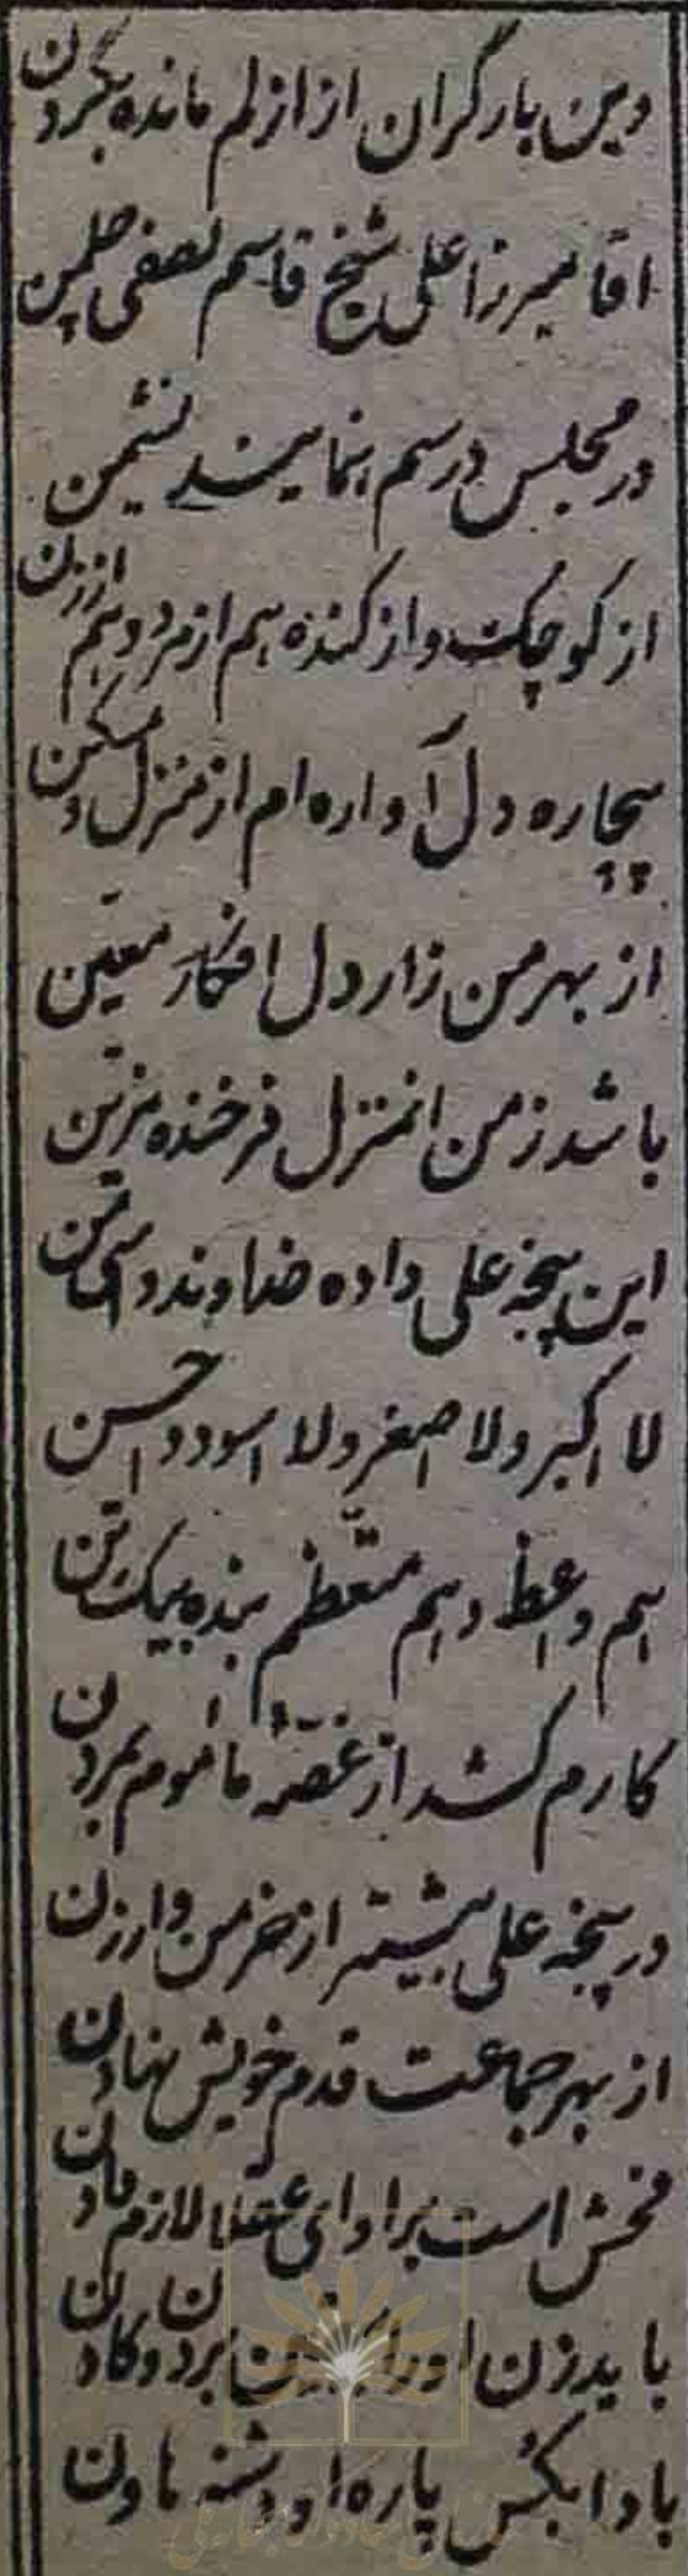 وین بار گران از ازلم مانده بگردن
اقا میرزا علی شیخ قاسم نصفی
در مجلس درسم بنمایند نشیمن
از کوچک و از کنده هم از مرد و هم از زن
بیچاره دل آواره ام از منزل و مسکن
از بهر من زار دل افکار معین
باشد ز من انمنزل فرخنده مزین
این پنجه علی داده خداوند
لا اکبر ولا اصغر ولا اسود و احسن
هم واعظ و هم متعظم بنده بیک تن
کارم کشد از غصه ماموم بمردن
در پنجه علی بیشتر از خرمن و ارزن
از بهر جماعت قدم خویش نهادن
فحش است برا وای عقلا لازم
باید زن او بردن و
پاره او دشته هاون